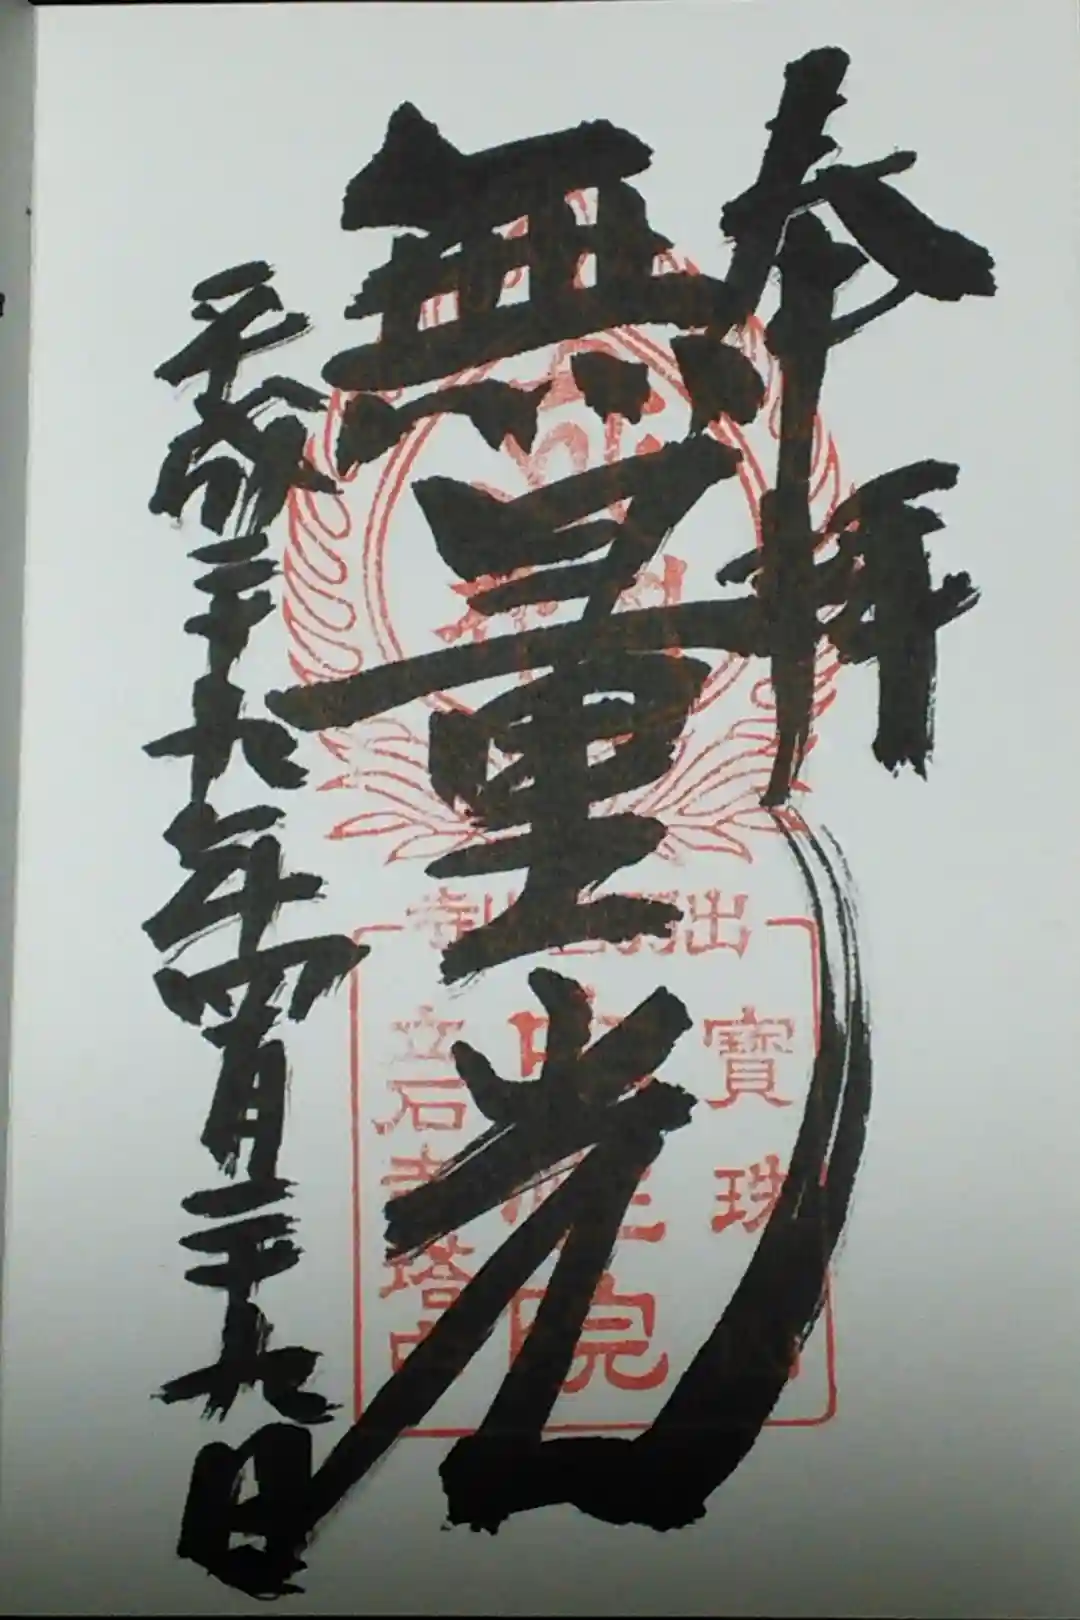 奉拝
無量光
平成二十九年四月二十九日
出羽山寺
寶珠
立石寺塔中
院